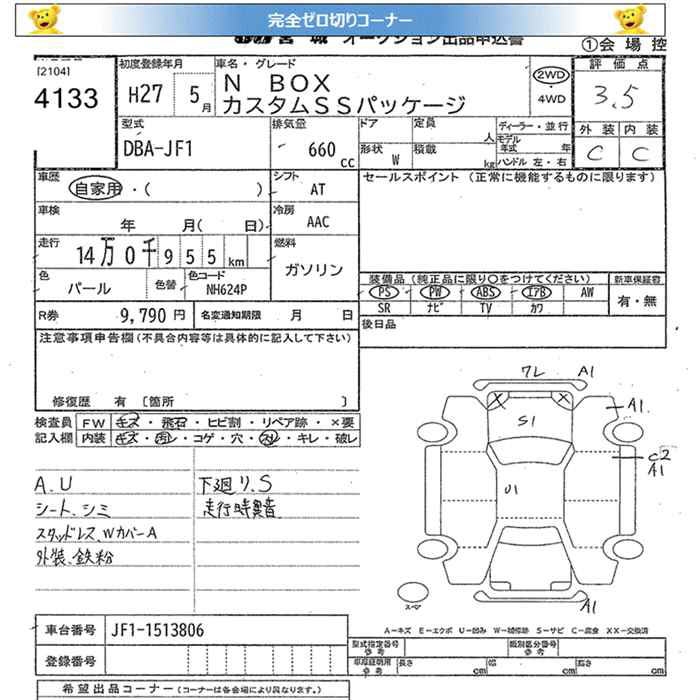 完全ゼロ切りコーナー
宮城 オークション出品申込書 ①会場控
[2104]
4133
初度登録年月
H27 5月
車名・グレード
N BOX
カスタムSSパッケージ
2WD
・
4WD
評価点
3.5
外装 内装
C C
型式
DBA-JF1
排気量
660 cc
ドア 定員 人
形状 W 積載 kg
ディーラー・並行
モデル年式 年
ハンドル 左・右
車歴
自家用・( )
シフト
AT
セールスポイント (正常に機能するものに限ります)
車検
年 月( 日)
冷房
AAC
走行
14万0千955km
燃料
ガソリン
色
パール
色替
色コード
NH624P
装備品 (純正品に限り○をつけてください)
新車保証書
PS PW ABS エアB AW
SR ナビ TV カワ
有・無
R券 9,790円 名変通知期限 月 日
後日品
注意事項申告欄(不具合内容等は具体的に記入して下さい)
修復歴 有 [箇所 ]
検査員 FW キズ・飛石・ヒビ割・リペア跡・×要
記入欄 内装 キズ・汚レ・コゲ・穴・スレ・キレ・破レ
A.U
シート、シミ
スタッドレス、WカバーA
外装、鉄粉
下廻り.S
走行時異音
ワレ A1
X X
A1
S1
C2
A1
U1
A1
スペア
A−キズ E−エクボ U−凹み W−補修跡 S−サビ C−腐食 XX−交換済
車台番号 JF1-1513806
登録番号
型式指定番号 参考 類別区分番号 参考
車庫証明用 参考 長さ cm 幅 cm 高さ cm
希望出品コーナー(コーナーは各会場により異なります。)